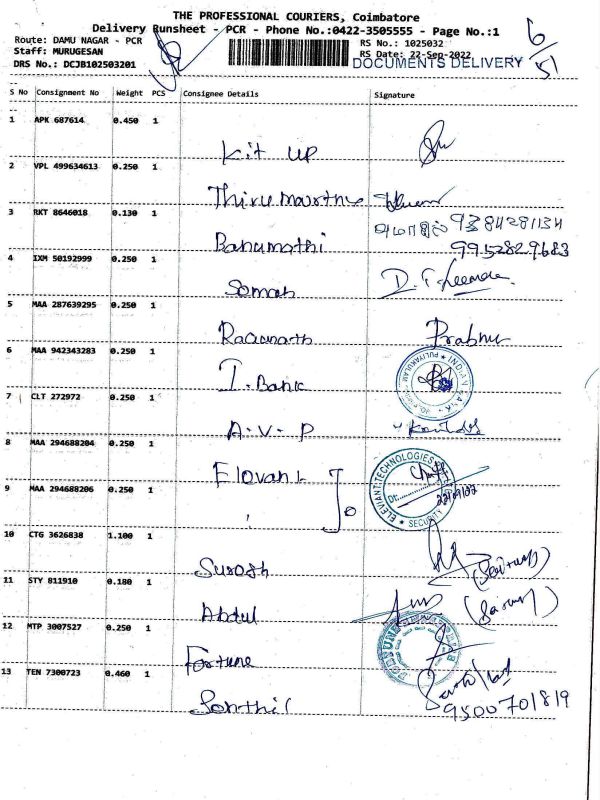 THE PROFESSIONAL COURIERS, Coimbatore
Delivery Runsheet - PCR - Phone No.:0422-3505555 - Page No.:1
Route: DAMU NAGAR - PCR
RS No.: 1025032
6/51
Staff: MURUGESAN
RS Date: 22-Sep-2022
DRS No.: DCJB102503201
DOCUMENTS DELIVERY
S No Consignment No Weight PCS Consignee Details Signature
1 APK 687614 0.450 1
Kit up
2 VPL 499634613 0.250 1
Thirumurthu
3 RKT 8646018 0.130 1
9384281134
Banumathi
9952829683
4 IXM 50192999 0.250 1
Soman
5 MAA 287639295 0.250 1
Prabhu
6 MAA 942343283 0.250 1
I. Bank
INDIAN BANK
PULIYAKULAM
7 CLT 272972 0.250 1
A.V.P
8 MAA 294688204 0.250 1
Elovant
ELEVIANT TECHNOLOGIES
Dt:
22/09/22
SECURITY
9 MAA 294688206 0.250 1
10 CTG 3626838 1.100 1
Suresh
11 STY 811910 0.180 1
Abdul
12 MTP 3007527 0.250 1
Fortune
13 TEN 7300723 0.460 1
Sonthil
9500701819